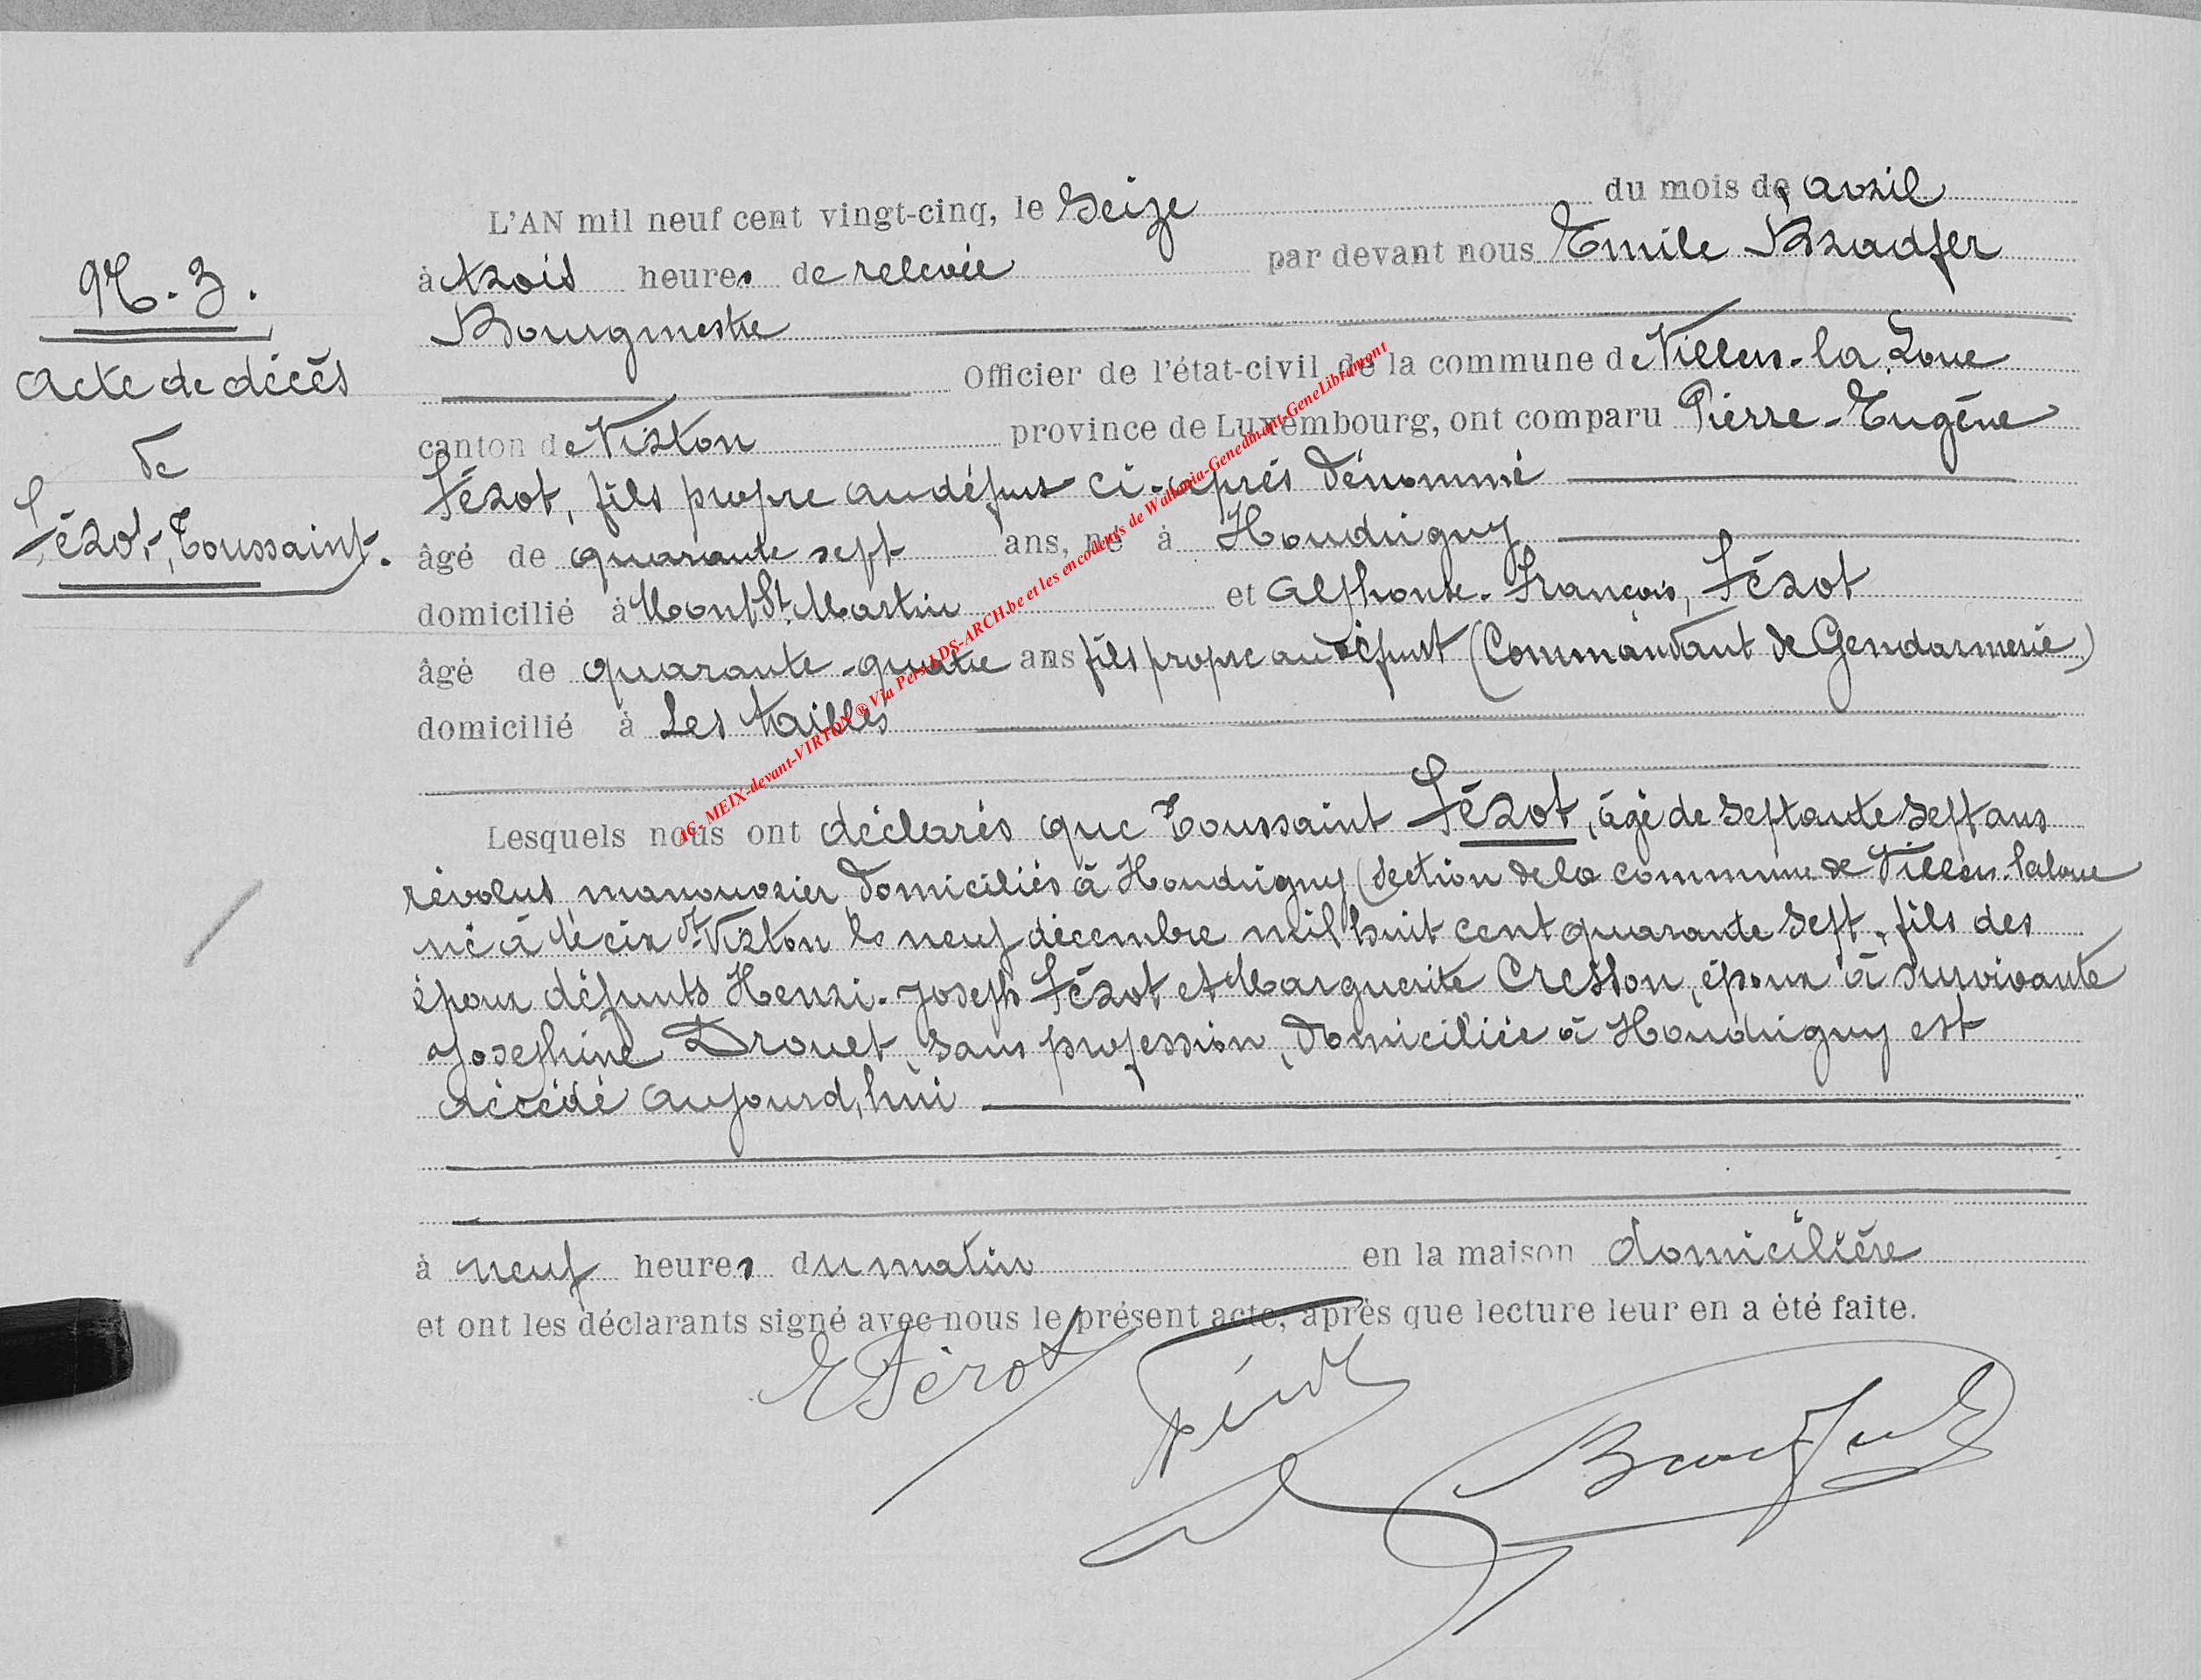 N. 3.
Acte de décès
de
Férot, Toussaint.
L'AN mil neuf cent vingt-cinq, le Seize du mois de avril
à trois heures de relevée par devant nous Emile Bradfer
Bourgmestre
Officier de l'état-civil de la commune de Villers-la-Loue
canton de Virton province de Luxembourg, ont comparu Pierre-Eugène
Férot, fils propre au défunt ci-après dénommé
âgé de quarante sept ans, né à Houdrigny
domicilié à Mont St. Martin et Alphonse-François, Férot
âgé de quarante-quatre ans fils propre au défunt (Commandant de Gendarmerie)
domicilié à Les tailles
Lesquels nous ont déclarés que Toussaint Férot, âgé de septante sept ans
révolus, manouvrier, domiciliés à Houdrigny (section de la commune de Villers-la loue
né à Meix dt Virton le neuf décembre mil huit cent quarante sept, fils des
époux défunts Henri-Joseph Férot et Marguerite Cresson, époux à survivante
Josephine Drouet, sans profession, domiciliée à Houdrigny est
décédé aujourd,hui
à neuf heures du matin en la maison domicilière
et ont les déclarants signé avec nous le présent acte, après que lecture leur en a été faite.
E Férot Férot Bradfer E
AC- MEIX-devant-VIRTON ® Via Pers-LDS-ARCH.be et les encodeurs de Wallonia-Genedinant-GeneLibramont